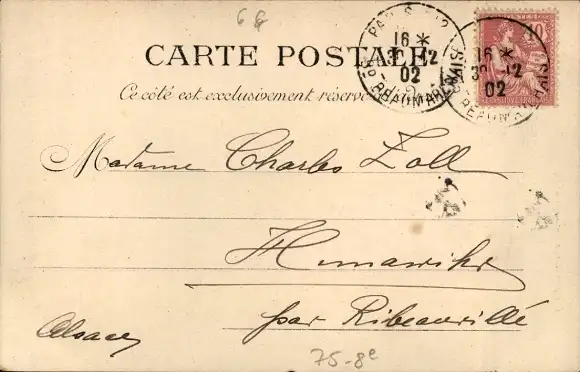 66
CARTE POSTALE
Ce côté est exclusivement réservé
PARIS
16 *
30 12
02
Bd BEAUMARCHAIS
16 *
30 12
02
10
Madame Charles Zoll
Hunawihr
par Ribeauvillé
Alsace
75-8e